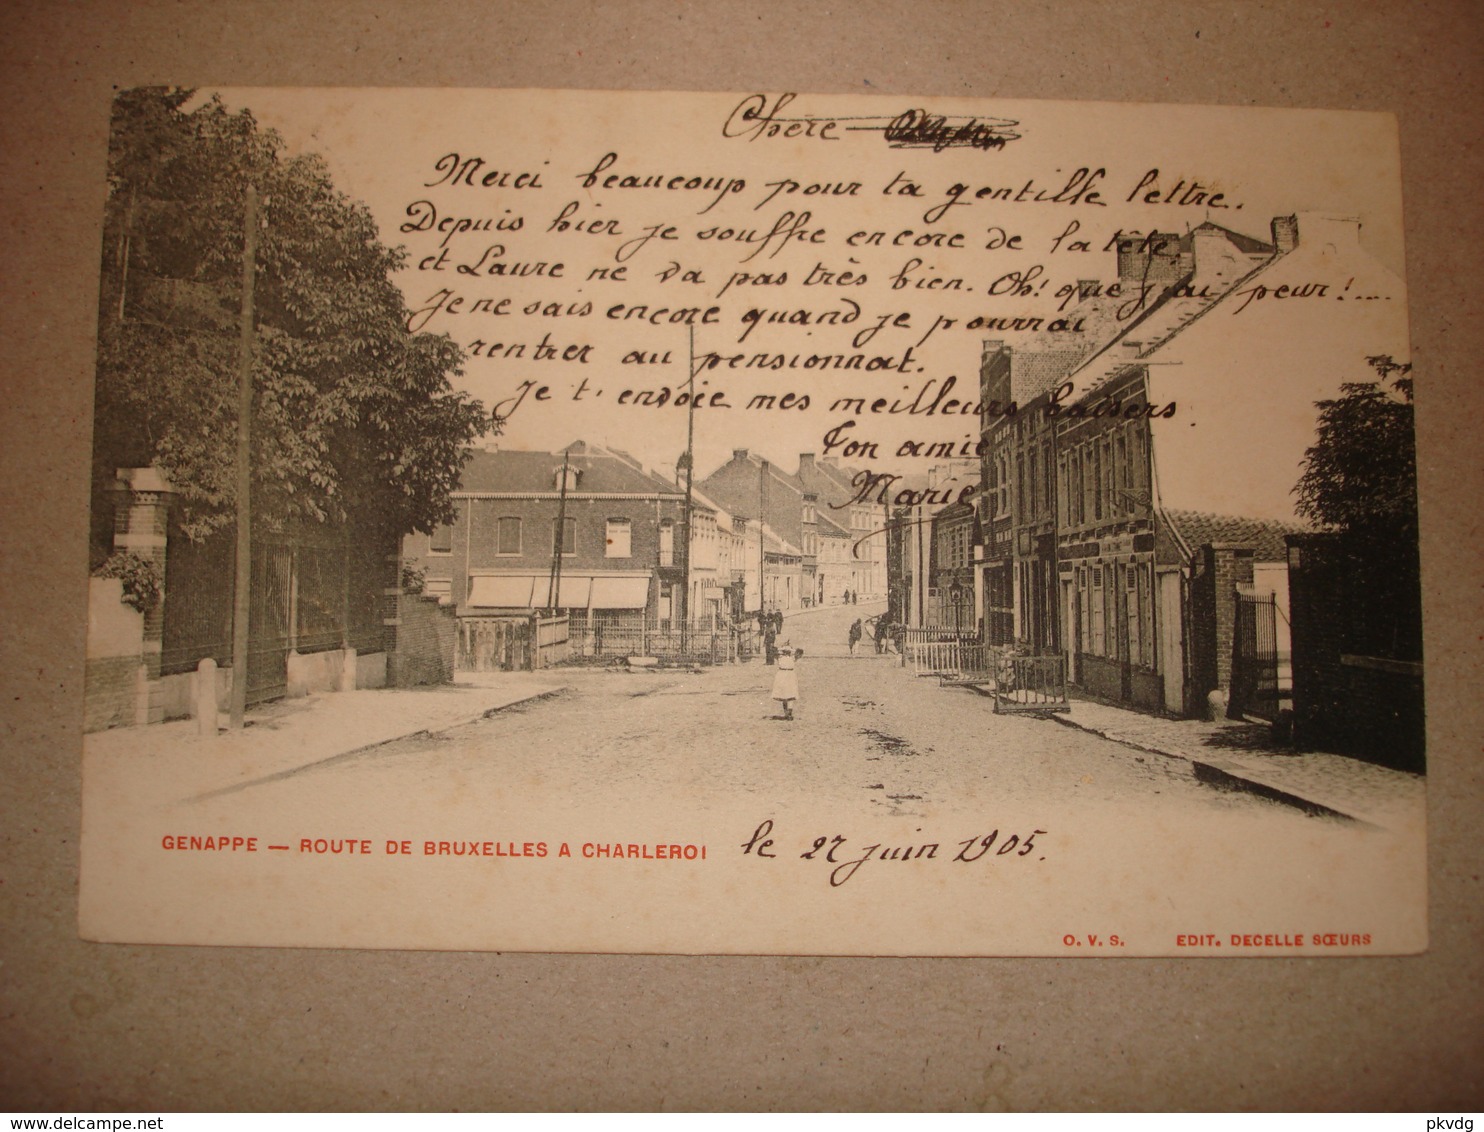 Chère
Merci beaucoup pour ta gentille lettre.
Depuis hier je souffre encore de la tête,
et Laure ne va pas très bien. Oh! que j'ai peur!....
Je ne sais encore quand je pourrai
rentrer au pensionnat.
Je t'envoie mes meilleurs baisers
Ton amie
Marie
GENAPPE — ROUTE DE BRUXELLES A CHARLEROI
le 27 juin 1905.
O. V. S. EDIT. DECELLE SŒURS
delcampe.net
pkvdg